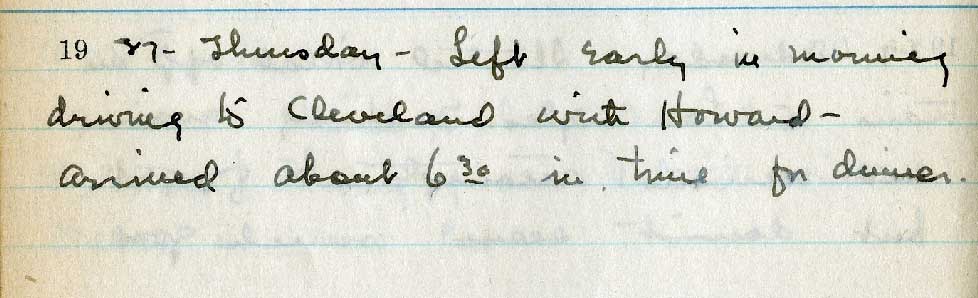 19 37- Thursday - Left early in morning
driving to Cleveland with Howard -
arrived about 6 30 in time for dinner.